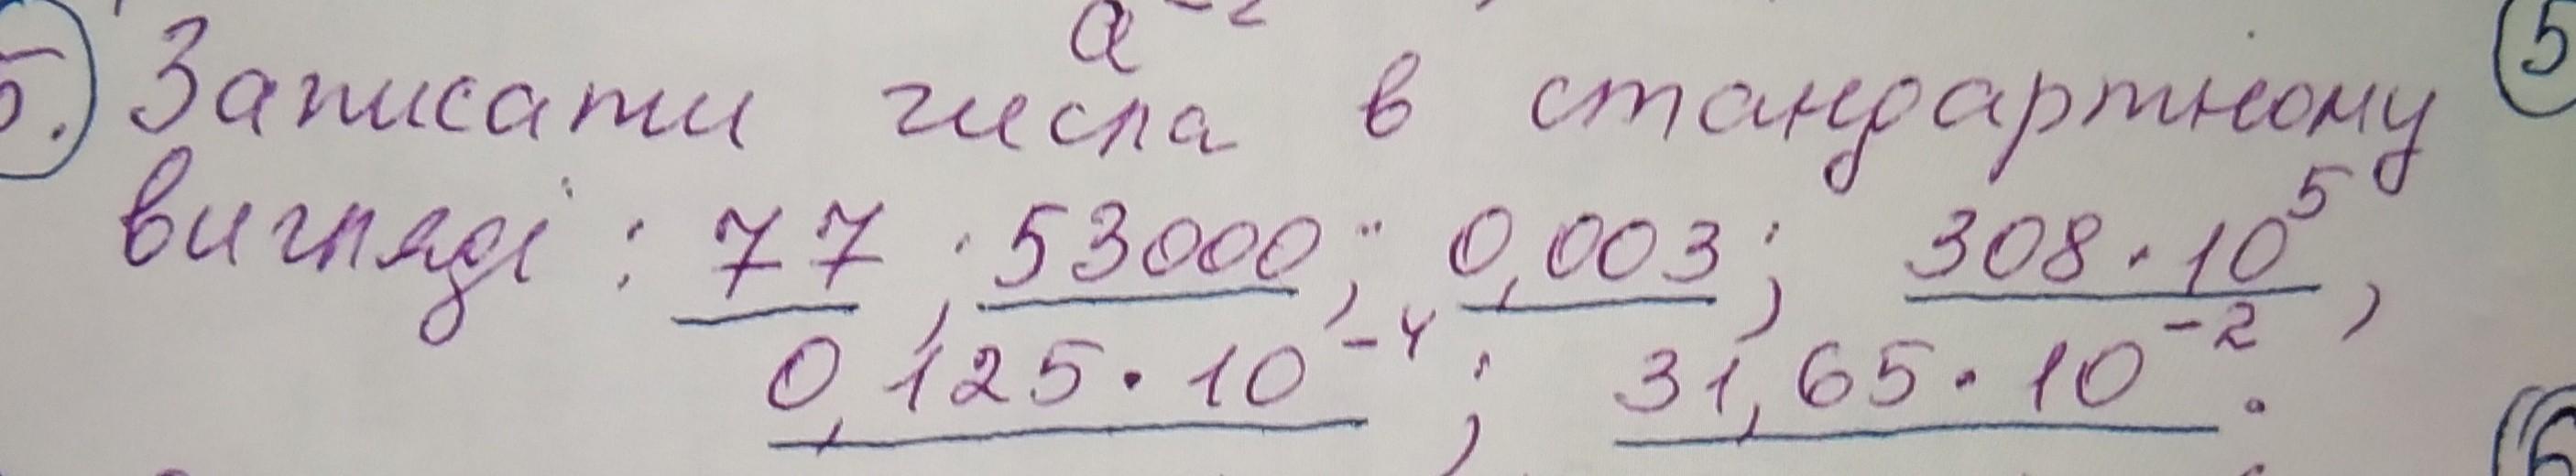 a⁻²
5. Записати числа в стандартному 5
вигляді : 77 ; 53000 ; 0,003 ; 308 · 10⁵ ,
0,125 · 10⁻⁴ ; 31,65 · 10⁻² .
6